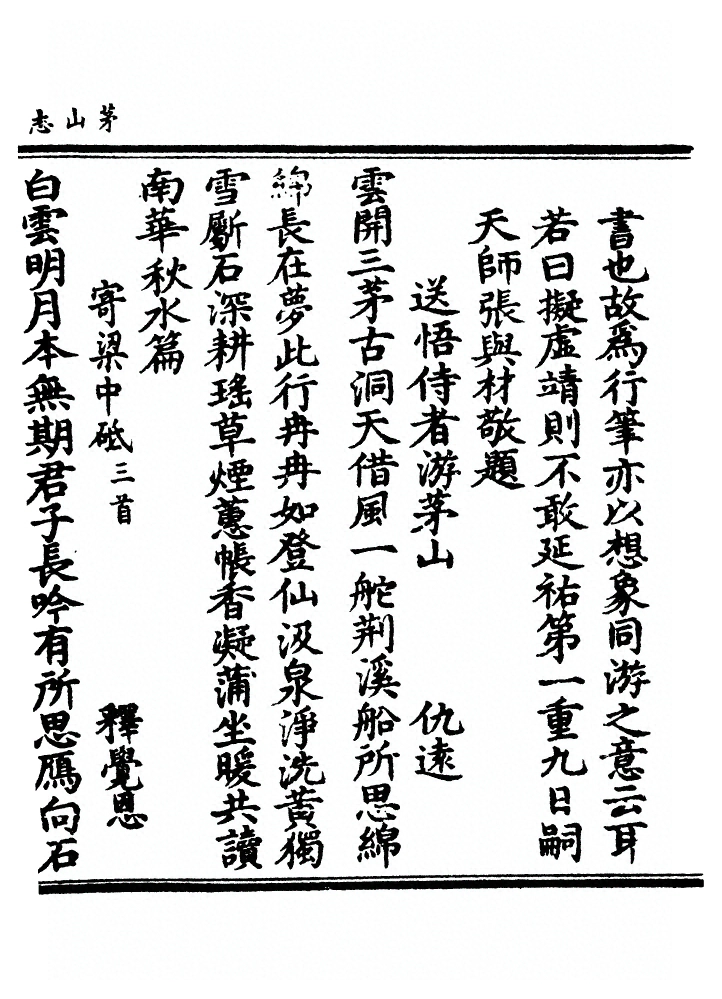 茅山志
書也故爲行筆亦以想象同游之意云耳
若曰擬虛靖則不敢延祐第一重九日嗣
天師張與材敬題
送悟侍者游茅山 仇遠
雲開三茅古洞天借風一舵荆溪船所思綿
綿長在夢此行冉冉如登仙汲泉淨洗黃獨
雪斸石深耕瑤草煙蕙帳香凝蒲坐暖共讀
南華秋水篇
寄梁中砥三首 釋覺恩
白雲明月本無期君子長吟有所思鴈向石